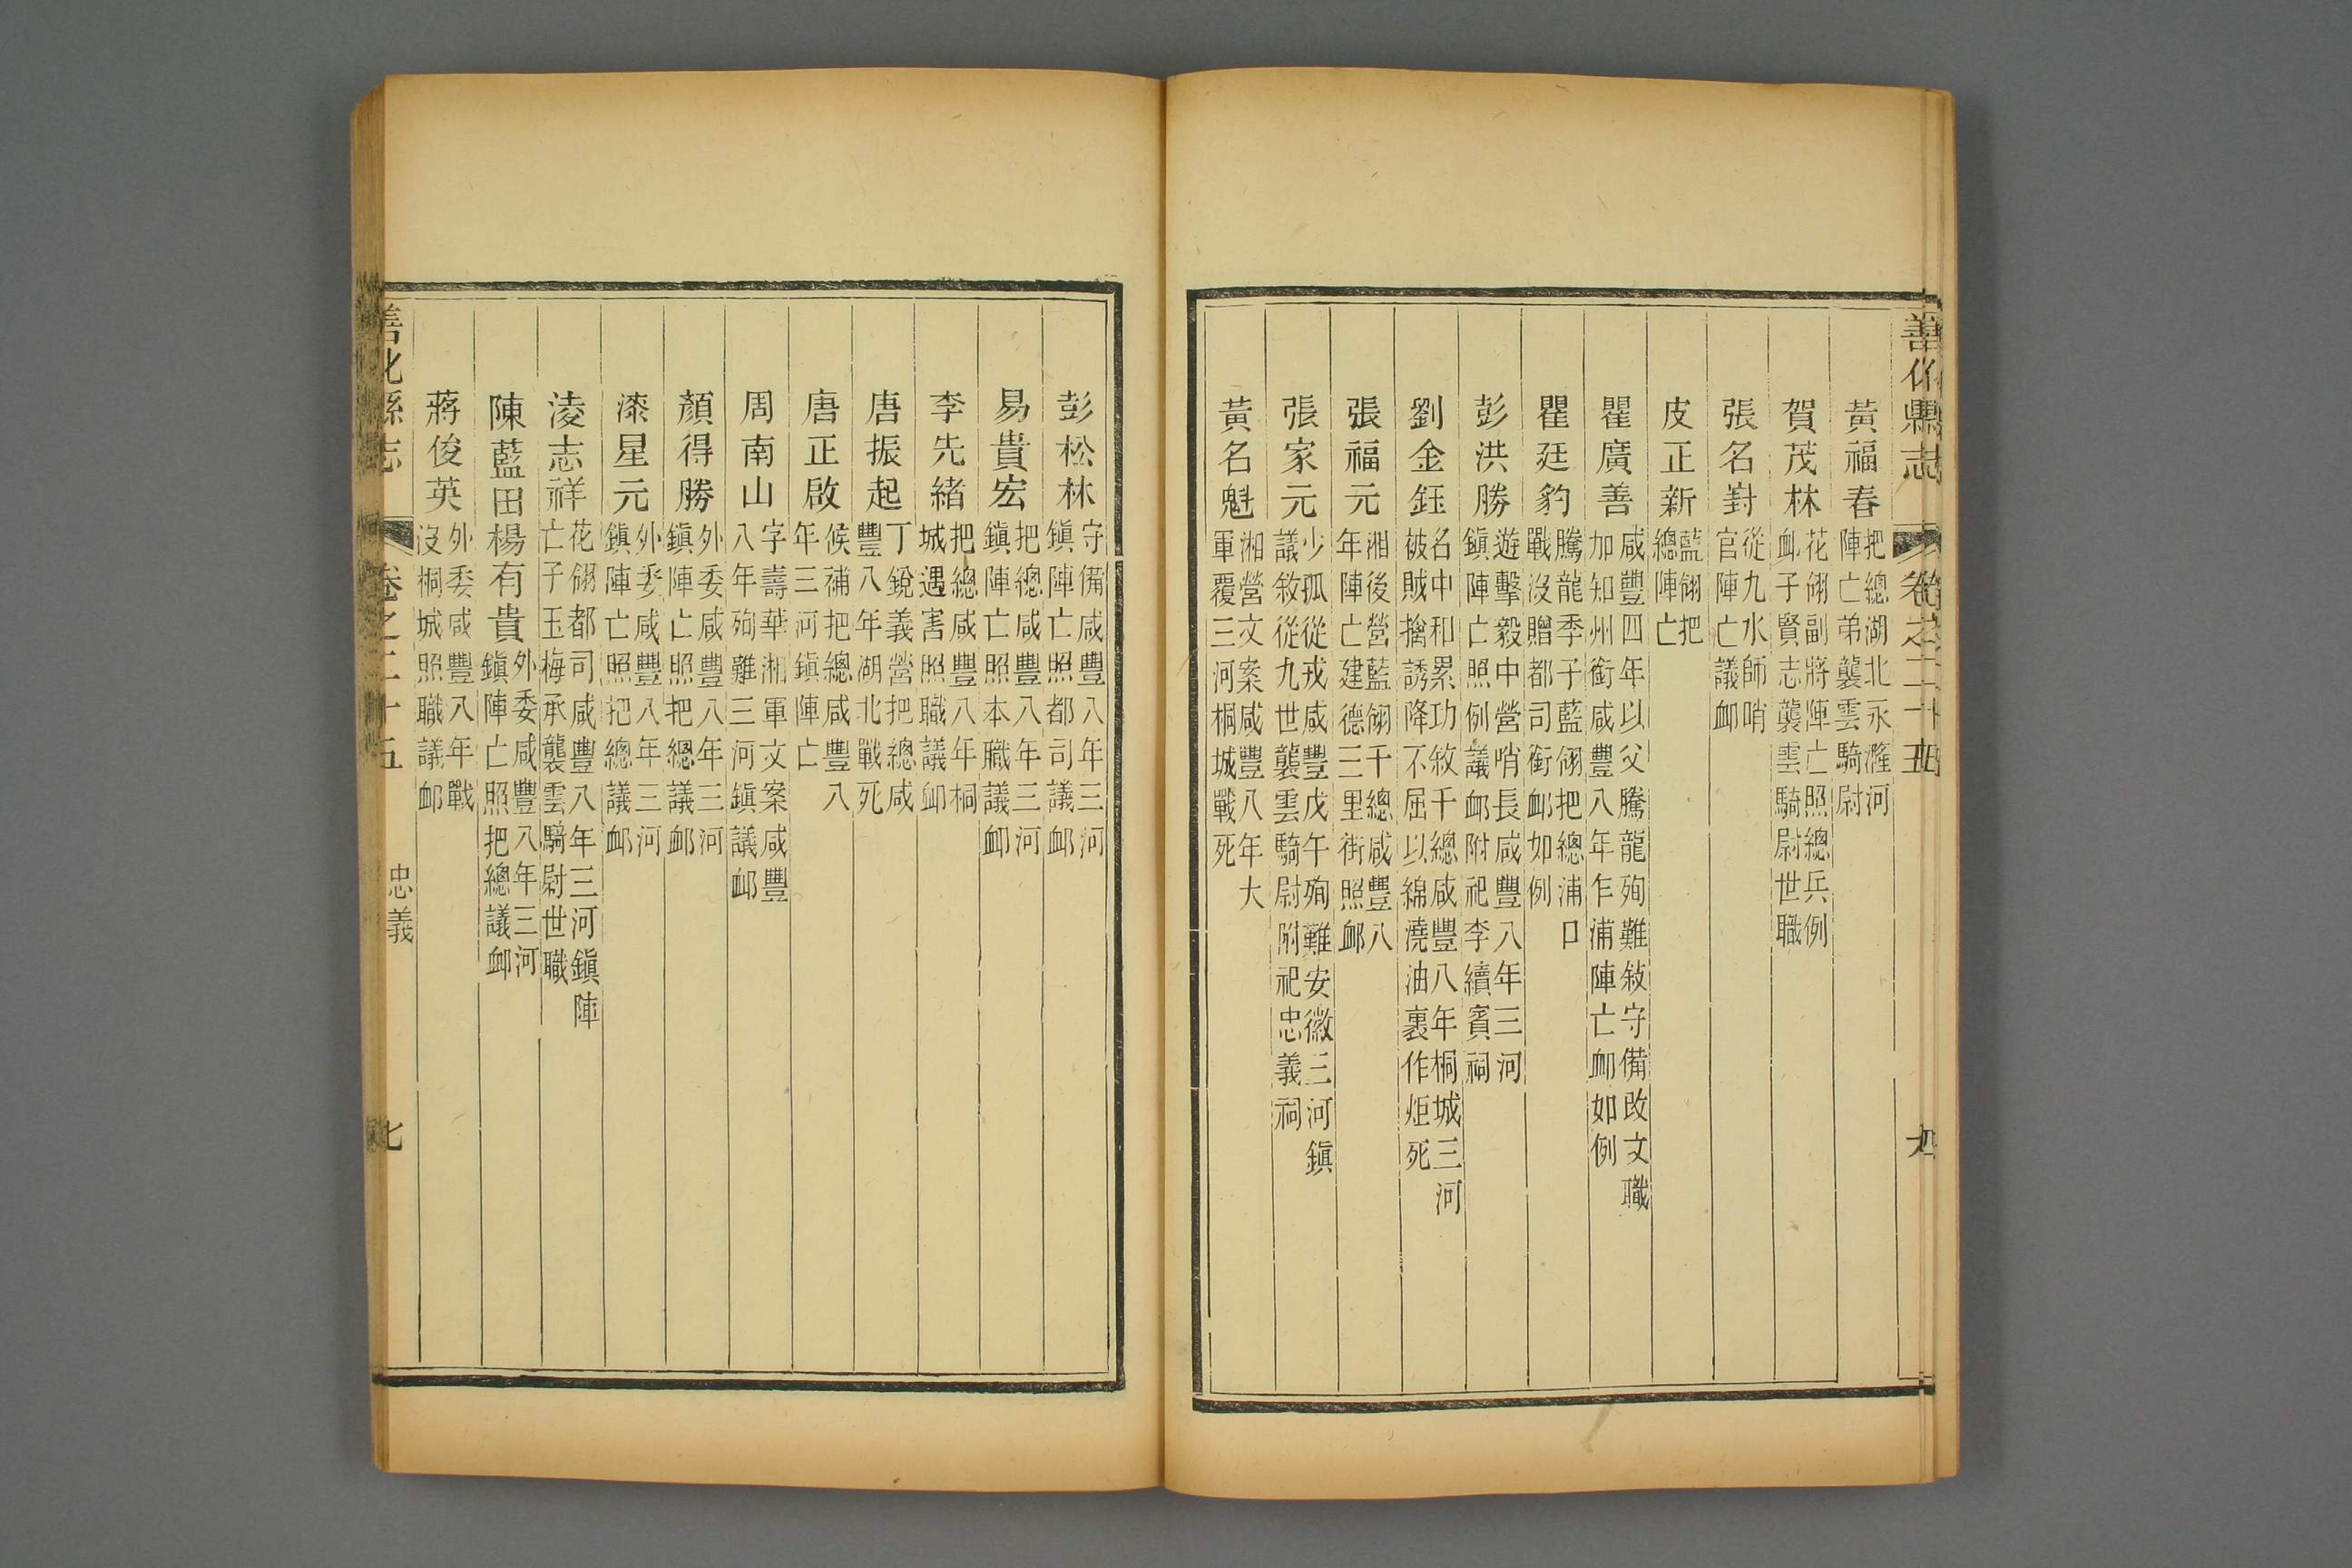 善化縣志
卷之二十五
黃福春 把總湖北永漋河
陣亡弟襲雲騎尉
賀茂林 花翎副將陣亡照總兵例
䘏子賢志襲雲騎尉世職
張名對 從九水師哨
官陣亡議䘏
皮正新 藍翎把
總陣亡
瞿廣善 咸豐四年以父騰龍殉難敘守備改文職
加知州銜咸豐八年乍浦陣亡䘏如例
瞿廷豹 騰龍季子藍翎把總浦口
戰沒贈都司銜䘏如例
彭洪勝 遊擊毅中營哨長咸豐八年三河
鎮陣亡照例議䘏附祀李續賓祠
劉金鈺 名中和累功敘千總咸豐八年桐城三河
被賊擒誘降不屈以綿澆油裹作炬死
張福元 湘後營藍翎千總咸豐八
年陣亡建德三里街照䘏
張家元 少孤從戎咸豐戊午殉難安徽三河鎮
議敘從九世襲雲騎尉附祀忠義祠
黃名魁 湘營文案咸豐八年大
軍覆三河桐城戰死
彭松林 守備咸豐八年三河
鎮陣亡照都司議䘏
易貴宏 把總咸豐八年三河
鎮陣亡照本職議䘏
李先緒 把總咸豐八年桐
城遇害照職議䘏
唐振起 丁銳義營把總咸
豐八年湖北戰死
唐正啟 候補把總咸豐八
年三河鎮陣亡
周南山 字壽華湘軍文案咸豐
八年殉難三河鎮議䘏
顏得勝 外委咸豐八年三河
鎮陣亡照把總議䘏
漆星元 外委咸豐八年三河
鎮陣亡照把總議䘏
淩志祥 花翎都司咸豐八年三河鎮陣
亡子玉梅承襲雲騎尉世職
陳藍田楊有貴 外委咸豐八年三河
鎮陣亡照把總議䘏
蔣俊英 外委咸豐八年戰
沒桐城照職議䘏
善化縣志
卷之二十五
忠義
七